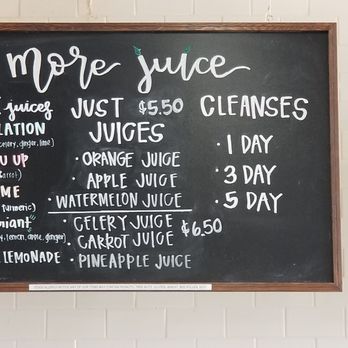 more juice
juices
LATION
celery, ginger, lime)
U UP
ME
turmeric)
riant
, lemon, apple, ginger)
LEMONADE
JUST $5.50
JUICES
· ORANGE JUICE
· APPLE JUICE
· WATERMELON JUICE
· CELERY JUICE
· CARROT JUICE
$6.50
· PINEAPPLE JUICE
CLEANSES
· 1 DAY
· 3 DAY
· 5 DAY